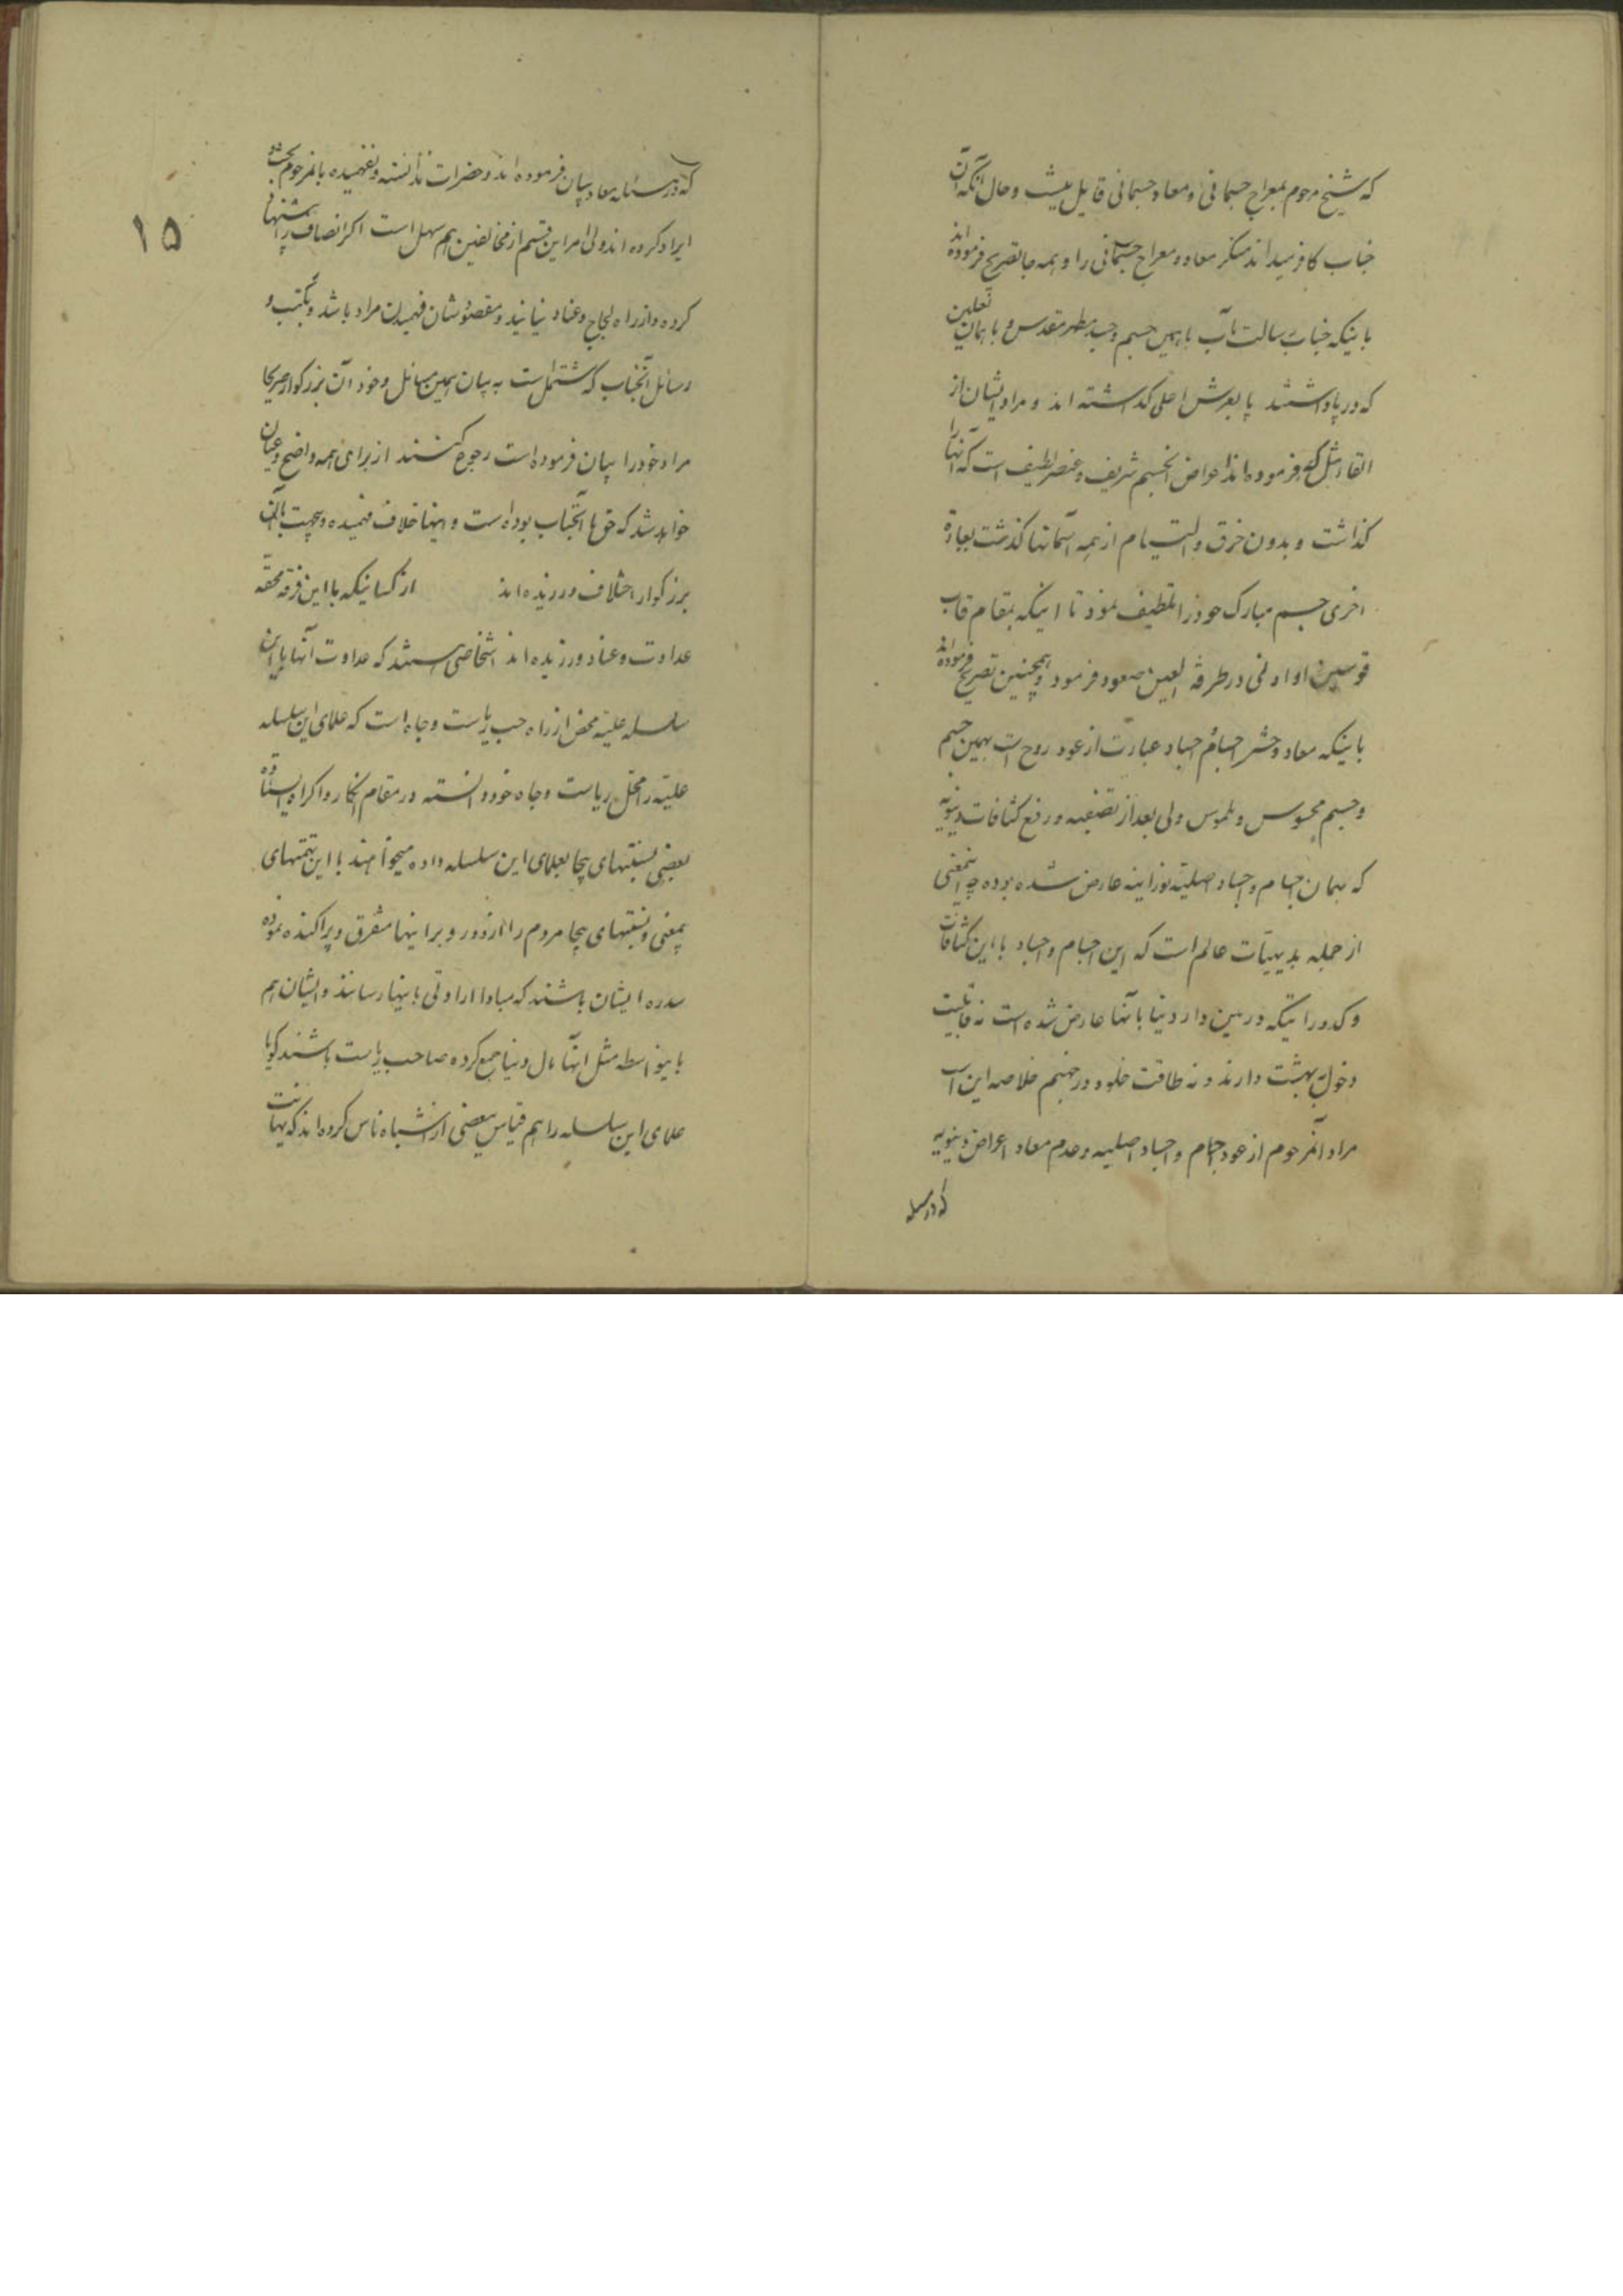 که شیخ مرحوم بمعراج جسمانی و معاد جسمانی قایل نیست و حال آنکه آن
جناب کافر میداند منکر معاد و معراج جسمانی را و همه جا تصریح فرموده اند
باینکه جناب رسالت مآب با همین جسم و جسد مطهر مقدس و با همان نعلین
که در پا داشتند پا بعرش اعلی گذاشته اند و مراد ایشان از
القاء مثل کوه فرموده اند اعراض آنجسم شریف و عنصر لطیف است که آنها را
گذاشت و بدون خرق و التیام از همه آسمانها گذشت بعبارة
اخری جسم مبارک خود را تلطیف نمود تا اینکه بمقام قاب
قوسین او ادنی در طرفة العین صعود فرمود و همچنین تصریح فرموده اند
باینکه معاد و حشر اجسام و اجساد عبارت از عود روح است بهمین جسم
و جسم محسوس و ملموس ولی بعد از تصفیه و رفع کثافات دنیویه
که بهمان اجسام و اجساد اصلیه نورانیه عارض شده بوده چه اینمعنی
از جمله بدیهیات عالم است که این اجسام و اجساد با این کثافات
و کدوراتیکه در بین دار دنیا بآنها عارض شده است نه قابلیت
دخول بهشت دارند و نه طاقت خلود در جهنم خلاصه این است
مراد آنمرحوم از عود اجسام و اجساد اصلیه و عدم معاد اعراض دنیویه
که در مسئله
۱۵
که در مسئله معاد بیان فرموده اند و حضرات ندانسته و نفهمیده بآنمرحوم
ایراد کرده اند ولی امر این قسم از مخالفین هم سهل است اگر انصاف را
کرده و از راه لجاج و عناد نیایند و مقصودشان فهمیدن مراد باشد و بکتب و
رسائل آنجناب که مشتمل است به بیان همین مسائل و خود آن بزرگوار صریحا
مراد خود را بیان فرموده است رجوع کنند از برای همه واضح و عیان
خواهد شد که حق با آنجناب بوده است و اینها خلاف فهمیده و بیجهت با آن
بزرگوار اختلاف ورزیده اند از کسانیکه با این فرقه محقه
عداوت و عناد ورزیده اند اشخاصی هستند که عداوت آنها با این
سلسله علیه محض از راه حب ریاست و جاه است که علمای این سلسله
علیه را مخل ریاست و جاه خود دانسته در مقام انکار و اکراه ایستاده
بعضی نسبتهای بیجا بعلمای این سلسله داده میخواهند با این تهمتهای
بیمعنی و نسبتهای بیجا مردم را از دور و بر اینها متفرق و پراکنده نموده
سد راه ایشان باشند که مبادا ارادتی باینها رسانند و ایشان هم
باینواسطه مثل آنها مال دنیا جمع کرده صاحب ریاست باشند گویا
علمای این سلسله را هم قیاس ببعضی از اشباه ناس کرده اند که